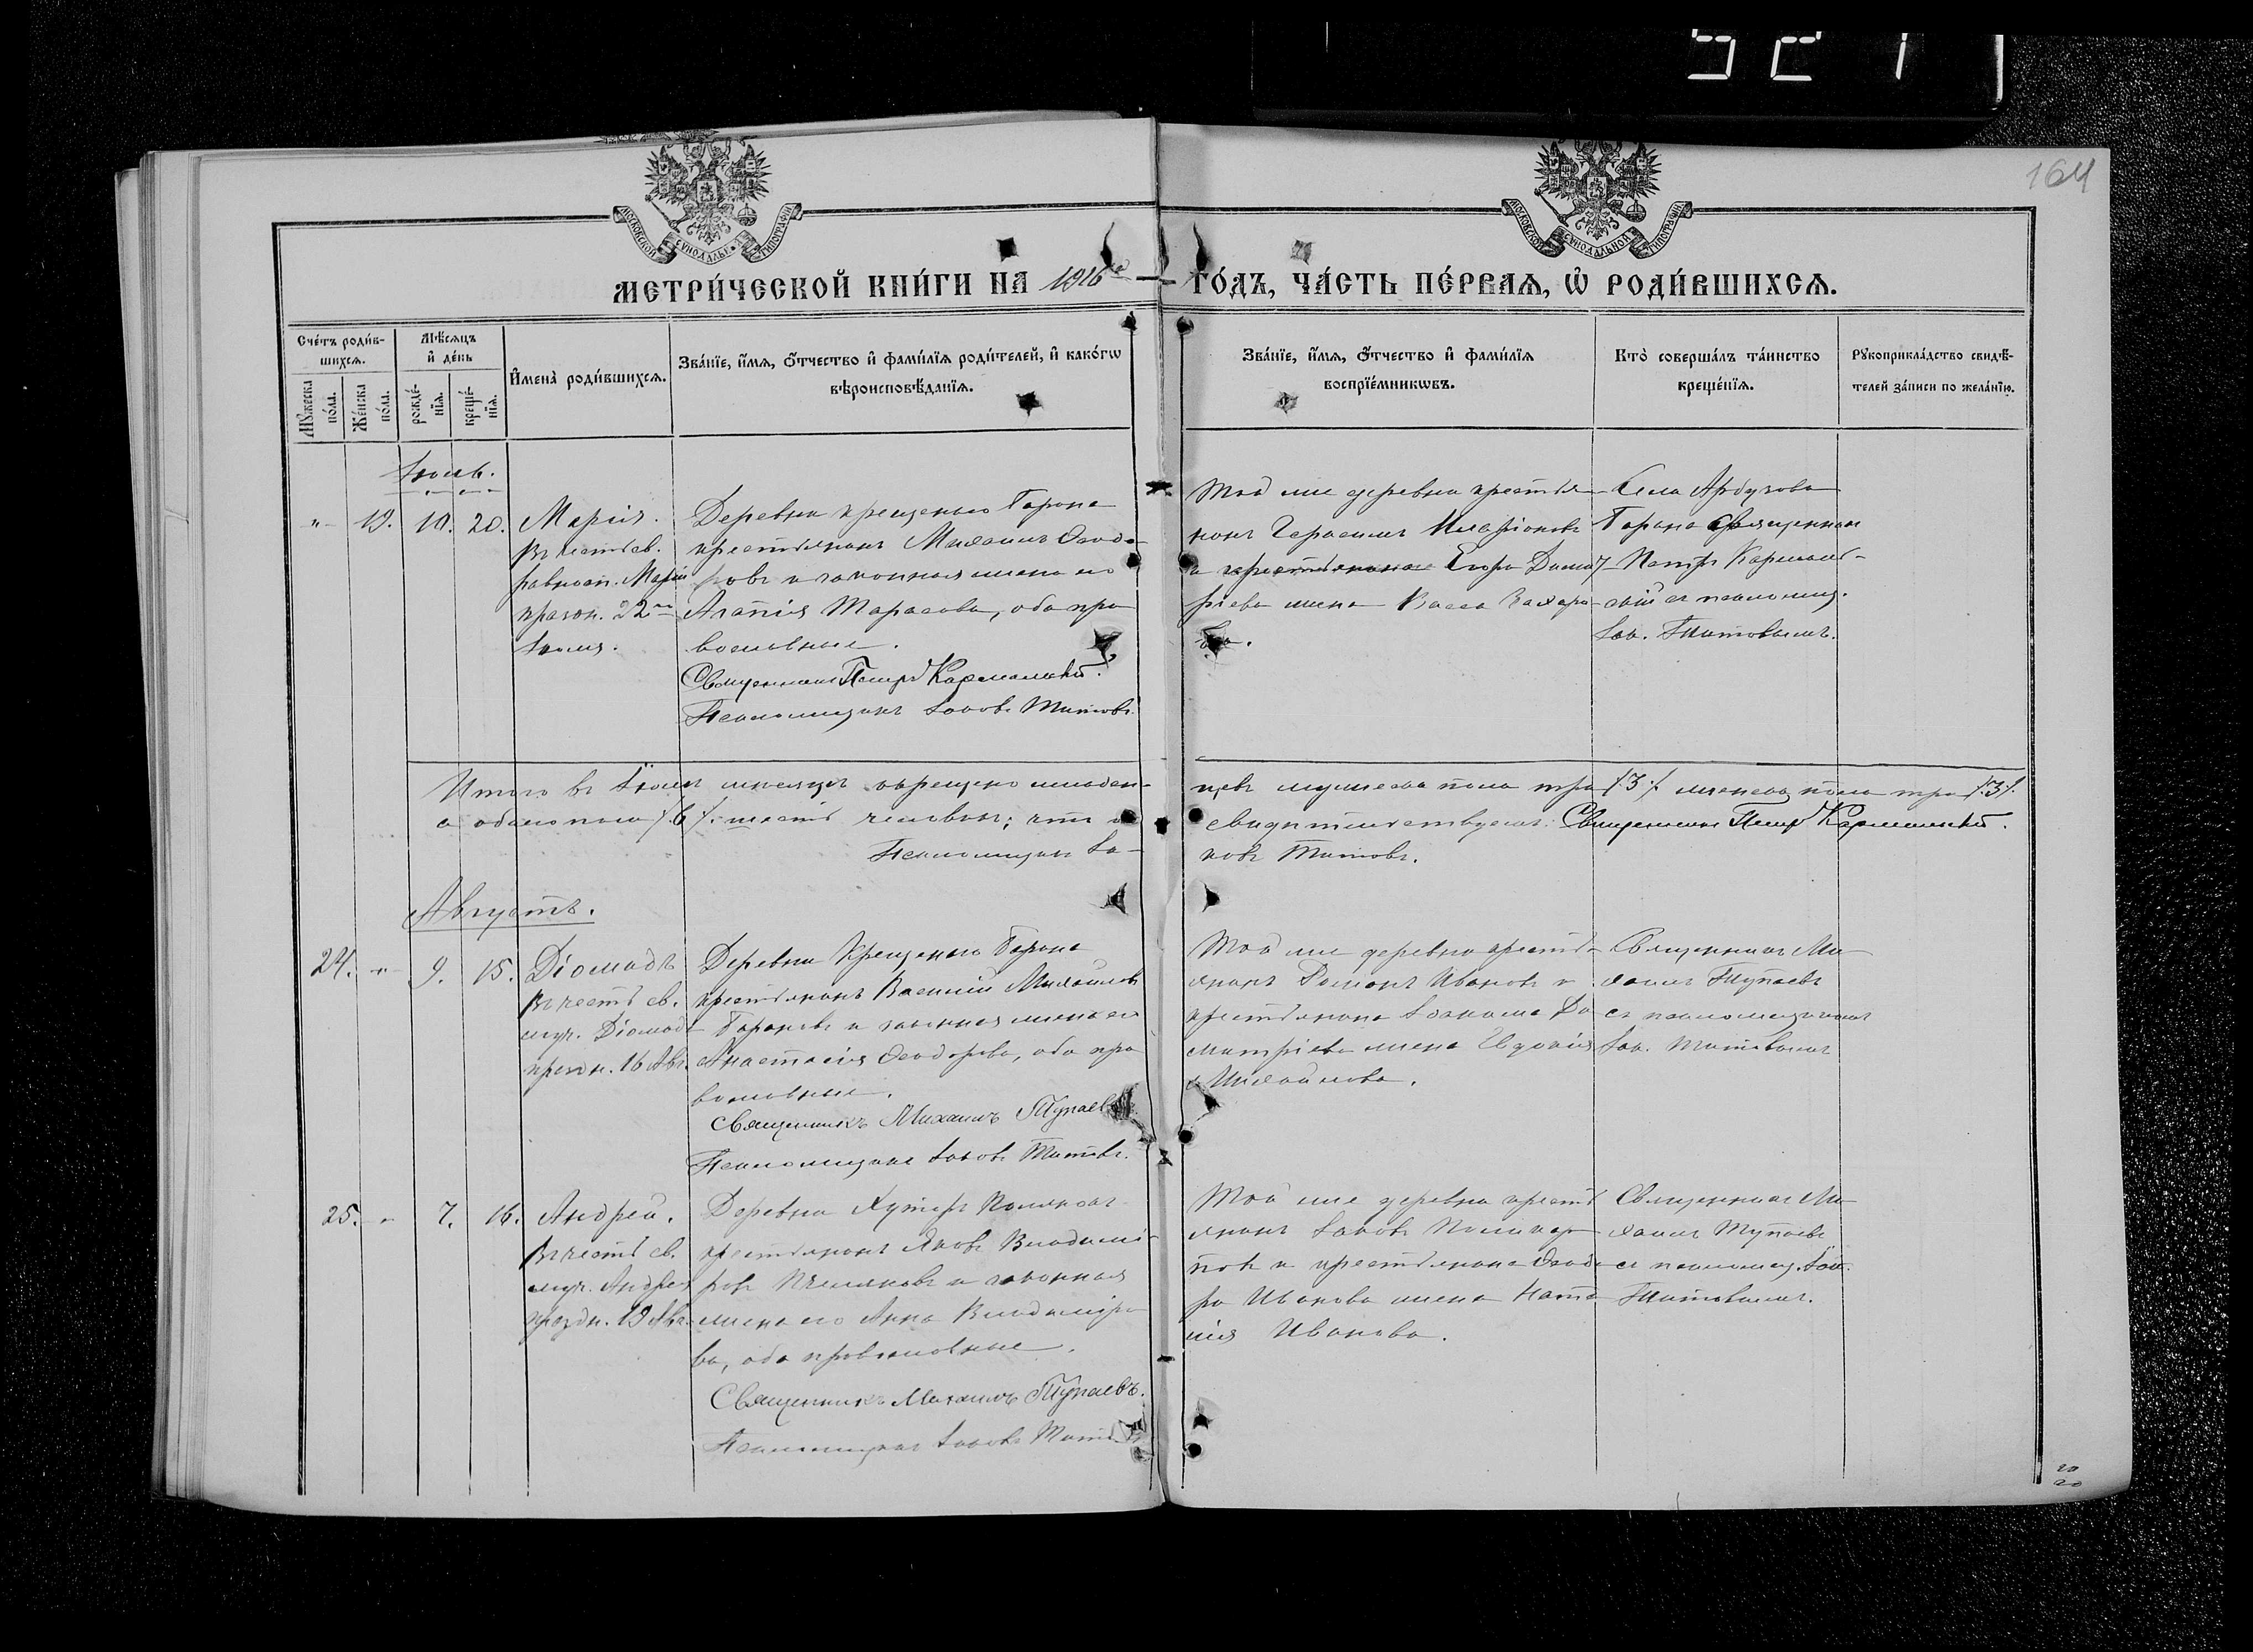 521
164
МОСКОВСКОЙ СѴНОДАЛЬНОЙ ТИПОГРАФІИ
МОСКОВСКОЙ СѴНОДАЛЬНОЙ ТИПОГРАФІИ
МЕТРИ́ЧЕСКОЙ КНИ́ГИ НА 1916 ГО́ДЪ, ЧА́СТЬ ПЕ́РВАѦ, Ѡ҆ РОДИ́ВШИХСѦ.
Сче́тъ роди́вшихсѧ.
Мꙋ́жеска по́ла.
Же́нска по́ла.
Мѣ́сѧцъ и҆ де́нь
рожде́нїѧ.
креще́нїѧ.
И҆мена̀ роди́вшихсѧ.
Зва́нїе, и҆́мѧ, ѻ҆́тчество и҆ фами́лїѧ роди́телей, и҆ како́гѡ
вѣроисповѣ́данїѧ.
Зва́нїе, и҆́мѧ, ѻ҆́тчество и҆ фами́лїѧ
воспрїе́мникѡвъ.
Кто̀ соверша́лъ та́инство
креще́нїѧ.
Рꙋкоприкла́дство свидѣ́-
телей за́писи по жела́нїю.
Іюль.
" 19. 10. 20.
Марія.
Въ честь св.
равноап. Маріи
празн. 22го
Іюля.
Деревни Крещеныхъ Гарона
крестьянинъ Михаилъ Ѳеодо-
ровъ и законная жена его
Агапія Тарасова, оба пра
вославные.
Священникъ Петръ Кармальскій.
Псаломщикъ Іаковъ Титовъ.
Той же деревни крестья-
нинъ Герасимъ Иларіоновъ
и Егора Дими-
тріева жена Васса Захаро-
ва.
Села
Священник
Петръ Кармаль-
скій съ псаломщ.
Іак. Титовымъ.
Итого въ Іюлѣ мѣсяцѣ окрещено младен-
цевъ мужескаго пола три /3/ женскаго пола три /3/.
а обоего пола /6/ шесть человѣкъ; что и
свидѣтельствуемъ: Священникъ Петръ Кармальскій.
Псаломщикъ Іа-
ковъ Титовъ.
Августъ.
24. " 9. 15.
Діомидъ
Въ честь св.
муч. Діомида
празн. 16 Авг.
Деревни Крещеныхъ Гарона
крестьянинъ Василій Михайловъ
и законная жена его
Анастасія Ѳеодорова, оба пра
вославные.
Священникъ Михаилъ Тупаевъ.
Псаломщикъ Іаковъ Титовъ.
Той же деревни крестьянинъ
Романъ Ивановъ и
крестьянина Іоакима Ди
митріева жена Евдокія
Михайлова.
Священникъ Ми
хаилъ Тупаевъ
съ псаломщикомъ
Іак. Титовымъ
25. " 7. 16.
Андрей.
Въ честь св.
муч. Андрея
праздн. 19 Авг.
Деревни Хуторъ
крестьянинъ Яковъ Владимі-
ровъ и законная
жена его Анна Владиміро
ва, оба православные.
Священникъ Михаилъ Тупаевъ.
Псаломщикъ Іаковъ Титовъ
Той же деревни кресть
янинъ Іаковъ Поликар
повъ и крестьянина Ѳеодо
ра Иванова жена Ната
лія Иванова.
Священникъ Ми
хаилъ Тупаевъ
съ псаломщ. Іак.
Титовымъ.